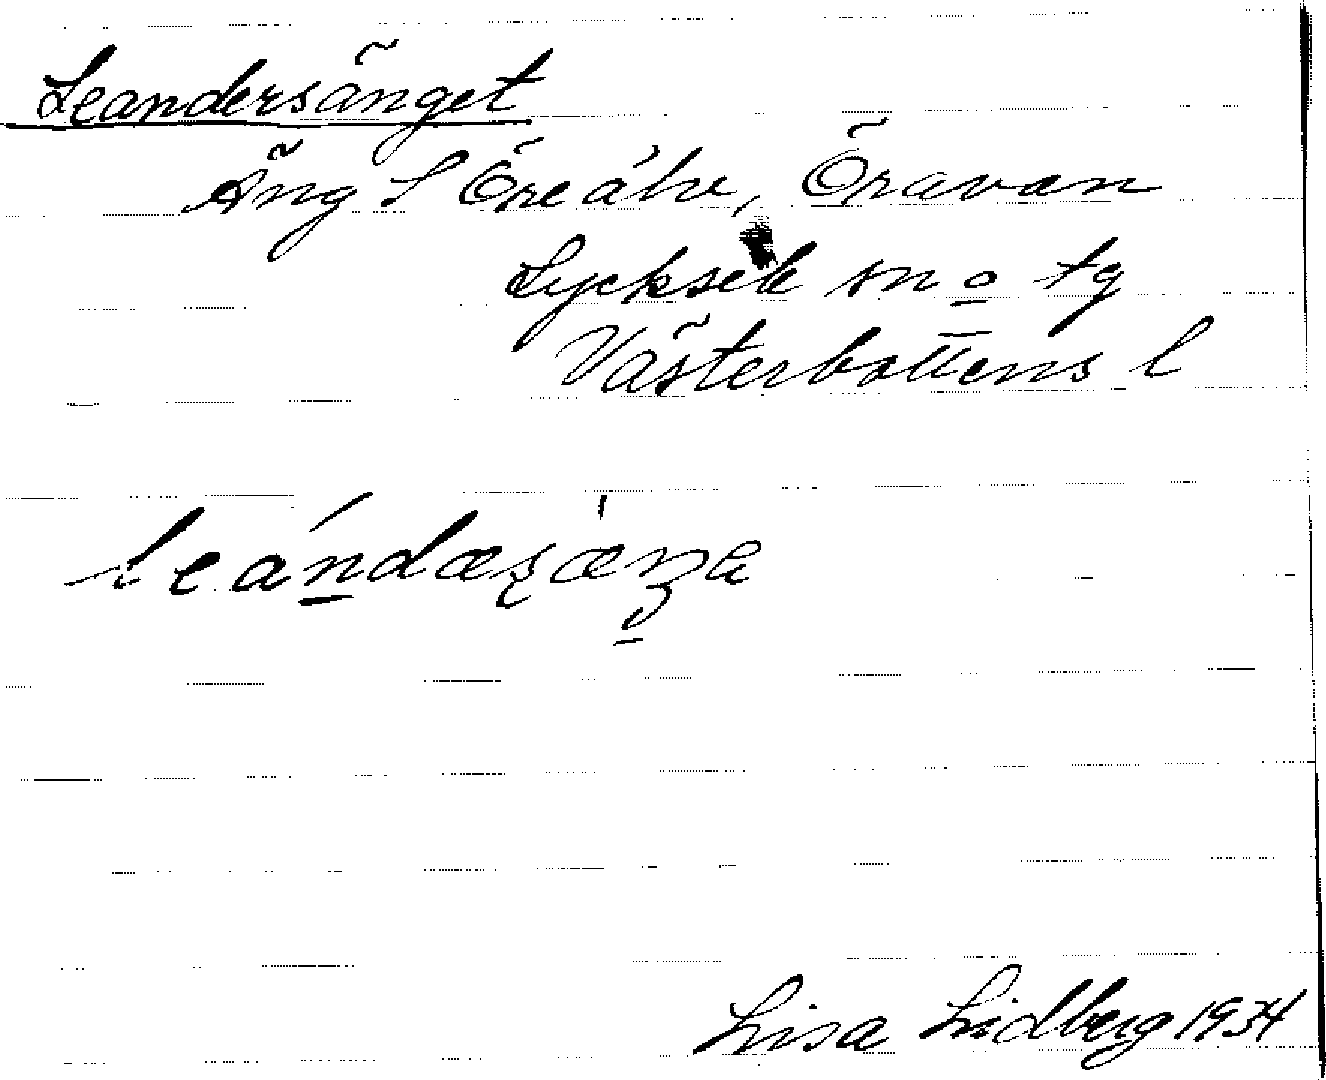 Leandersänget
Äng S Öreälv, Öravan
Lycksele sn o tg
Västerbottens l
Lisa Lidberg 1934